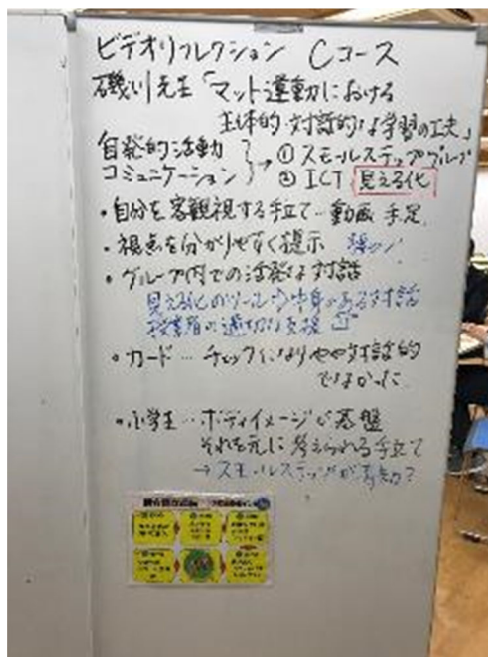 ビデオリフレクション Cコース
磯川先生「マット運動における
主体的・対話的な学習の工夫」
自発的活動
コミュニケーション
→ ① スモールステップ グループ
② ICT 見える化
・自分を客観視する手立て…動画 手足
・視点を分かりやすく提示
・グループ内での活発な対話
見える化のツール→中身がある対話
授業者の適切な支援
・カード…チェックになりやや対話的
でなかった
・小学生…ボディイメージが基盤
それを元に考えられる手立て
→スモールステップが有効?